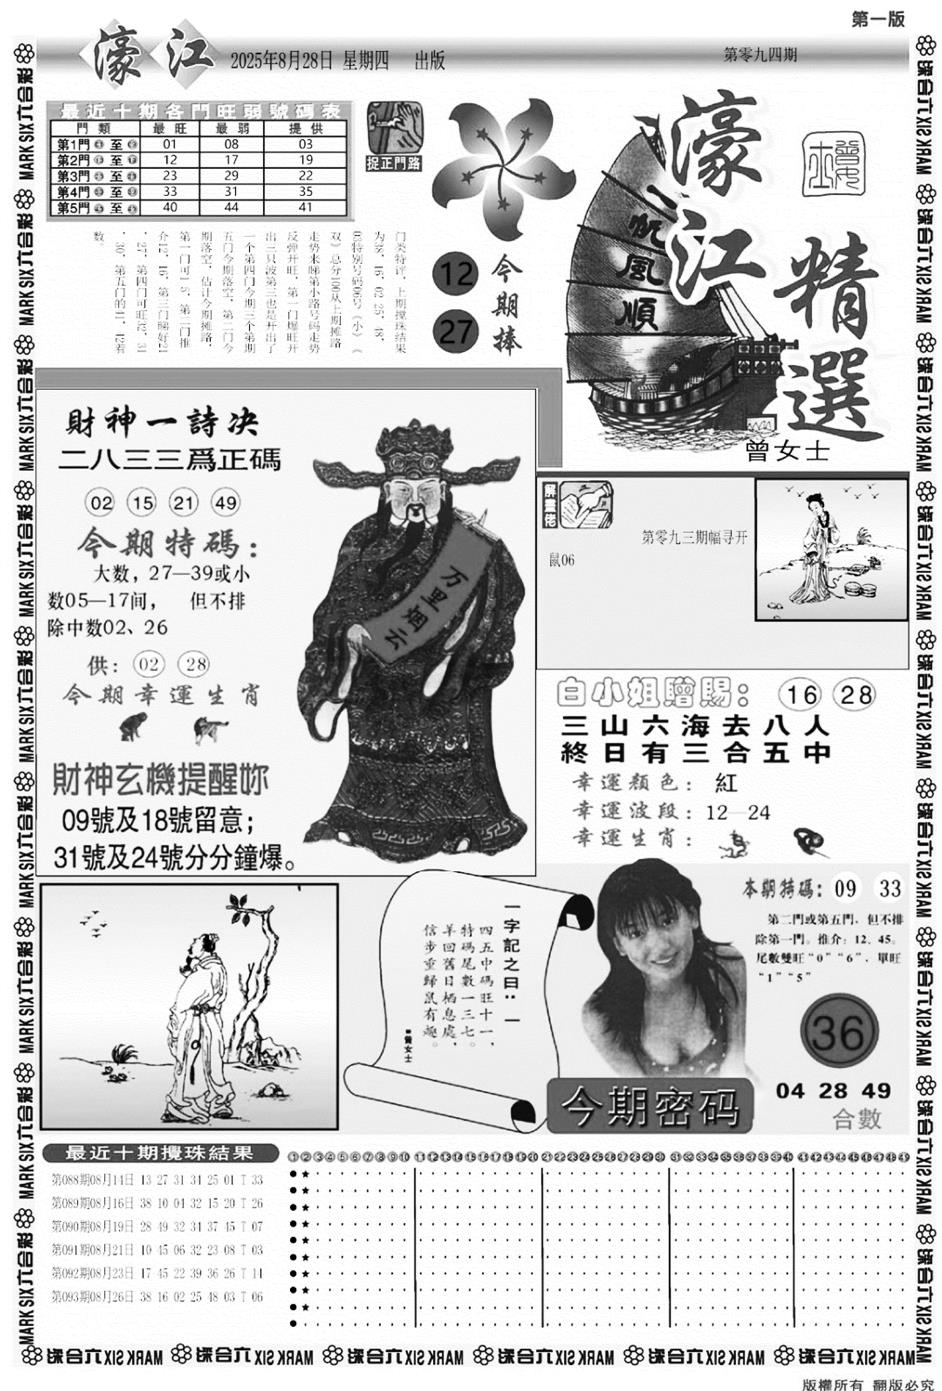 第一版
濠江 2025年8月28日 星期四 出版
第零九四期
最近十期各門旺弱號碼表
門類 最旺 最弱 提供
第1門 至 01 08 03
第2門 至 12 17 19
第3門 至 23 29 22
第4門 至 33 31 35
第5門 至 40 44 41
捉正門路
门类特评，上期搅珠结果
为38、16、02 25、48、
03特别号码06号《小》《
双》总分100从上期摊路
走势来睇第小路号码走势
反弹开旺，第一门爆旺开
出三只波第三也是开出了
一个第四门今期三个第期
五门今期落空，第二门今
期落空，估计今期摊路，
第一门可1、5，第二门推
介12、16，第三门睇好21
、27，第四门可旺过，31
、30，第五门的41，42着
数
今期捧
12
27
一帆風順
濠江
精選
曾女士
財神一詩决
二八三三爲正碼
02 15 21 49
今期特碼：
大数，27—39或小
数05—17间， 但不排
除中数02、26
供：02 28
今期幸運生肖
財神玄機提醒妳
09號及18號留意；
31號及24號分分鐘爆。
万里烟云
解畫佬
第零九三期幅寻开
鼠06
白小姐贈賜：16 28
三山六海去八人
終日有三合五中
幸運顏色：紅
幸運波段：12—24
幸運生肖：
一字記之曰：一
四五中碼旺十一，
特碼尾數一三七。
羊回舊日栖息處，
信步重歸鼠有趣。
■曾女士
本期特碼：09 33
第二門或第五門，但不排
除第一門。推介：12、45。
尾數雙旺“0”“6”，單旺
“1”“5”
36
今期密码
04 28 49
合數
最近十期攪珠結果
第088期08月14日 13 27 31 34 25 01 T 33
第089期08月16日 38 10 04 32 15 20 T 26
第090期08月19日 28 49 32 34 37 45 T 07
第091期08月21日 10 45 06 32 23 08 T 03
第092期08月23日 17 45 22 39 36 26 T 14
第093期08月26日 38 16 02 25 48 03 T 06
MARK SIX六合彩
版權所有 翻版必究